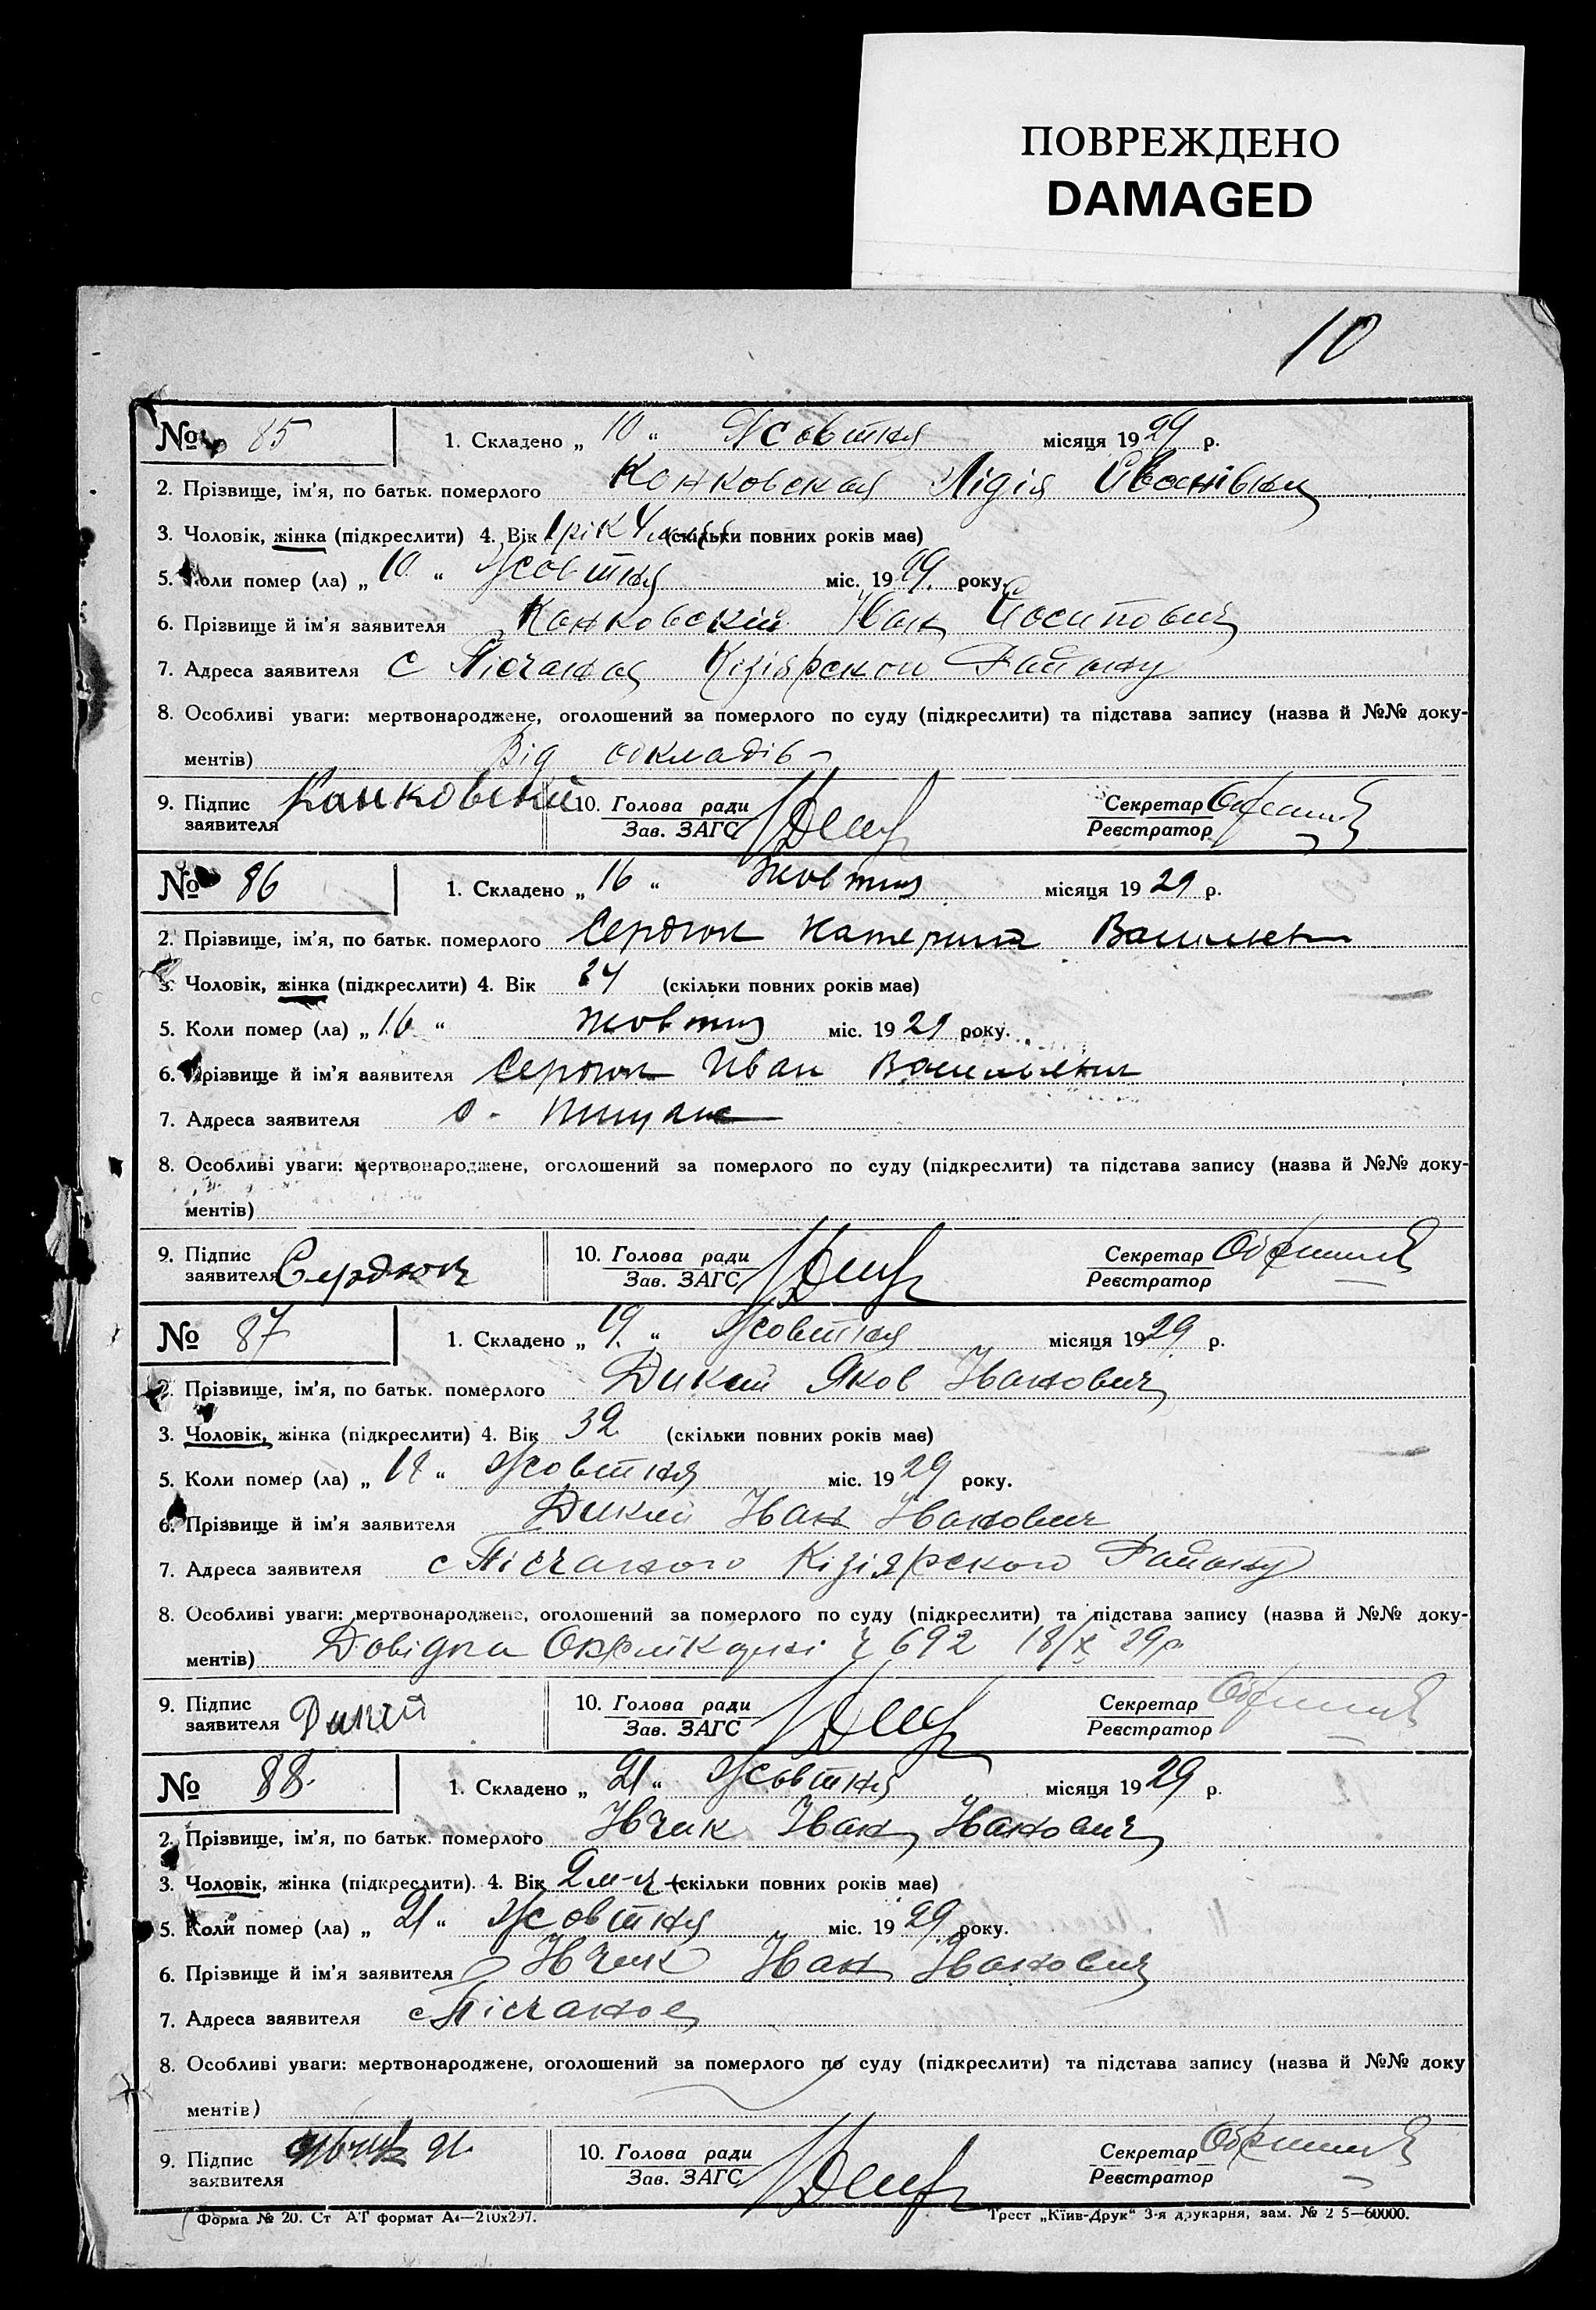 ПОВРЕЖДЕНО
DAMAGED
10
№ 85 1. Складено „ 10 “ Жовтня місяця 1929 р.
2. Прізвище, ім'я, по батьк. померлого Конковская Лідія Иванівна
3. Чоловік, жінка (підкреслити) 4. Вік 1 рік 4 (скільки повних років має)
5. Коли помер (ла) „ 10 “ Жовтня міс. 1929 року.
6. Прізвище й ім'я заявителя Конковский Іван Йосипович
7. Адреса заявителя с Пісчаная Кізіярскои Району
8. Особливі уваги: мертвонароджене, оголошений за померлого по суду (підкреслити) та підстава запису (назва й №№ доку-
ментів) Від
9. Підпис заявителя Канковский 10. Голова ради Зав. ЗАГС Секретар Реєстратор
№ 86 1. Складено „ 16 “ Жовтня місяця 1929 р.
2. Прізвище, ім'я, по батьк. померлого Сердюк Катерина
3. Чоловік, жінка (підкреслити) 4. Вік (скільки повних років має)
5. Коли помер (ла) „ 16 “ жовтня міс. 1929 року.
6. Прізвище й ім'я заявителя Сердюк Иван
7. Адреса заявителя с.
8. Особливі уваги: мертвонароджене, оголошений за померлого по суду (підкреслити) та підстава запису (назва й №№ доку-
ментів)
9. Підпис заявителя Сердюк 10. Голова ради Зав. ЗАГС Секретар Реєстратор
№ 87 1. Складено „ 19 “ Жовтня місяця 1929 р.
2. Прізвище, ім'я, по батьк. померлого Дикий Яков Іванович
3. Чоловік, жінка (підкреслити) 4. Вік 32 (скільки повних років має)
5. Коли помер (ла) „ “ Жовтня міс. 1929 року.
6. Прізвище й ім'я заявителя Дикий Іван Іванович
7. Адреса заявителя с Пісчаного Кізіярского Району
8. Особливі уваги: мертвонароджене, оголошений за померлого по суду (підкреслити) та підстава запису (назва й №№ доку-
ментів) Довідка ч 692 18/X 29р
9. Підпис заявителя Дикий 10. Голова ради Зав. ЗАГС Секретар Реєстратор
№ 88 1. Складено „ 21 “ Жовтня місяця 1929 р.
2. Прізвище, ім'я, по батьк. померлого Івчик Іван Іванович
3. Чоловік, жінка (підкреслити). 4. Вік 2 м-ц (скільки повних років має)
5. Коли помер (ла) „ 21 “ Жовтня міс. 1929 року.
6. Прізвище й ім'я заявителя Івчик Іван Іванович
7. Адреса заявителя с Пісчаное
8. Особливі уваги: мертвонароджене, оголошений за померлого по суду (підкреслити) та підстава запису (назва й №№ доку
ментів)
9. Підпис заявителя 10. Голова ради Зав. ЗАГС Секретар Реєстратор
Форма № 20. Ст АТ формат А4—210х297. Трест „Київ-Друк“ 3-я друкарня, зам. № 2 5—60000.